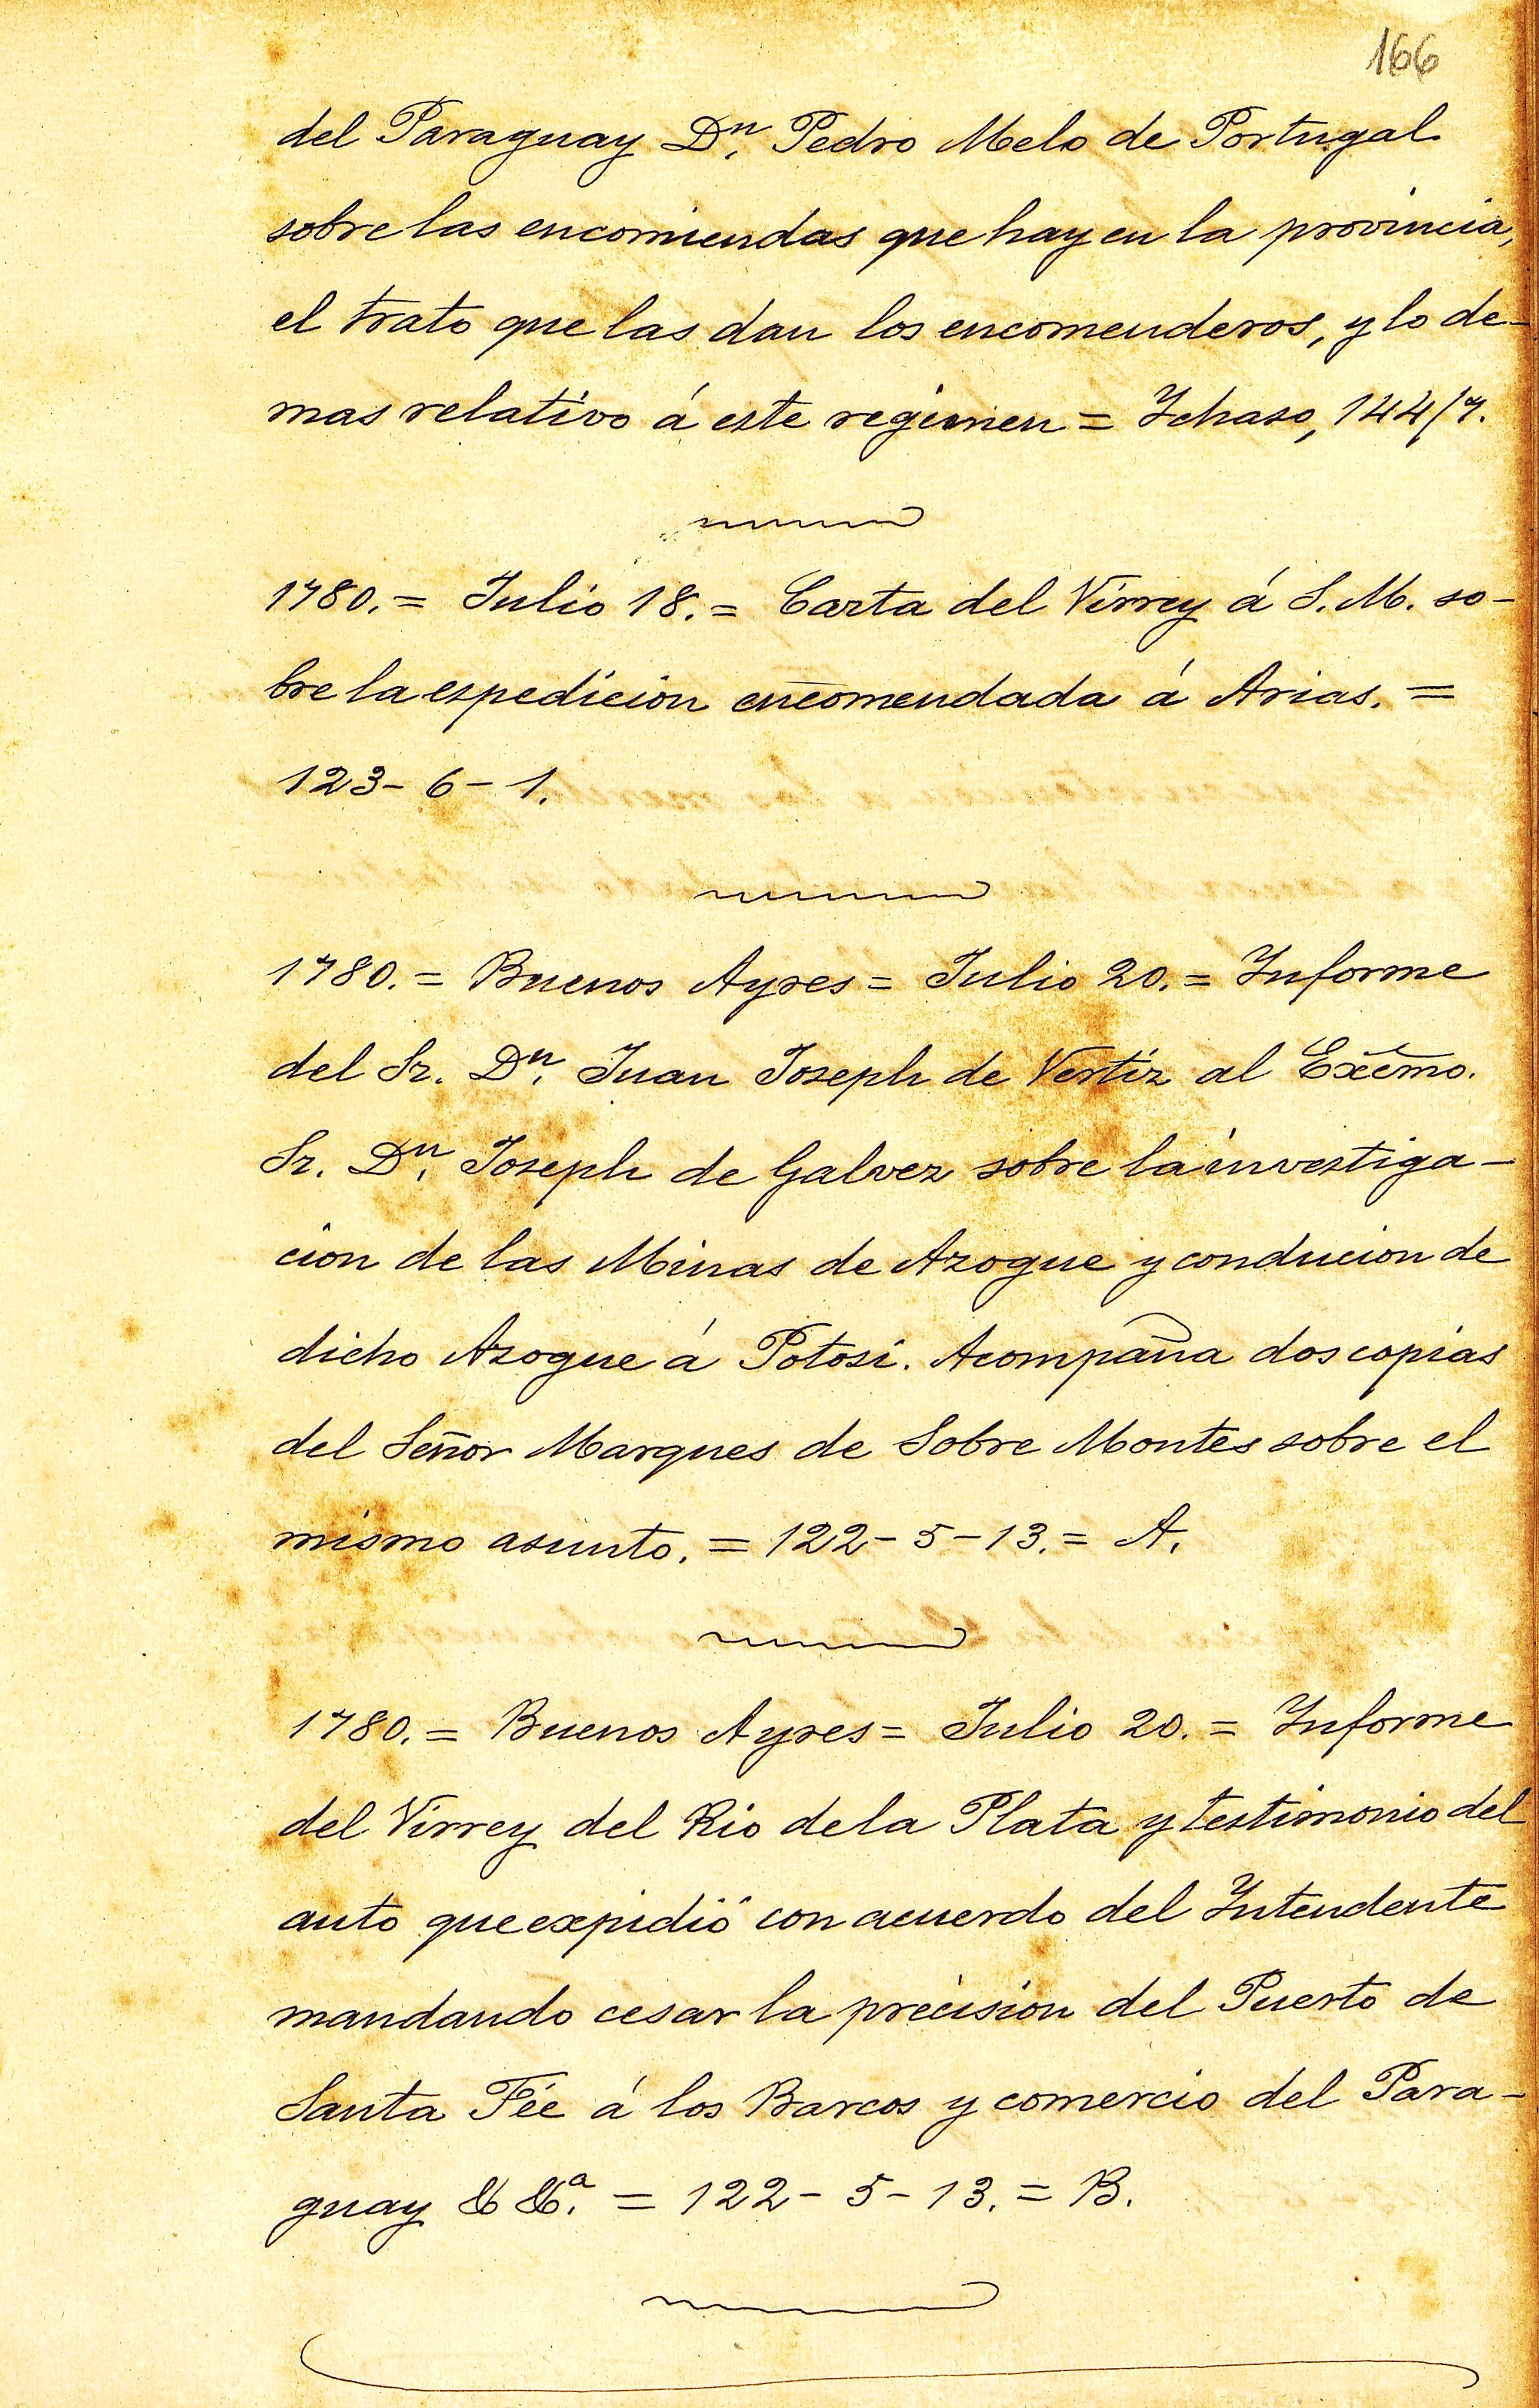 166
del Paraguay Dⁿ. Pedro Melo de Portugal
sobre las encomiendas que hay en la provincia,
el trato que las dan los encomenderos, y lo de-
mas relativo á este regimen = Ychaso, 144/7.
1780. = Julio 18. = Carta del Virrey á S. M. so-
bre la espedicion encomendada á Arias. =
123 - 6 - 1.
1780. = Buenos Ayres = Julio 20. = Informe
del Sr. Dⁿ. Juan Joseph de Vertiz al Excmo.
Sr. Dⁿ. Joseph de Galvez sobre la investiga-
cion de las Minas de Azogue y conducion de
dicho Azogue á Potosi. Acompaña dos copias
del Señor Marques de Sobre Montes sobre el
mismo asunto. = 122 - 5 - 13. = A.
1780. = Buenos Ayres = Julio 20. = Informe
del Virrey del Rio de la Plata y testimonio del
auto que expidió con acuerdo del Intendente
mandando cesar la precision del Puerto de
Santa Fée á los Barcos y comercio del Para-
guay & &ª. = 122 - 5 - 13. = B.